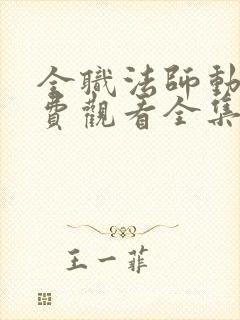 全職法師動
費觀看全集
王一菲